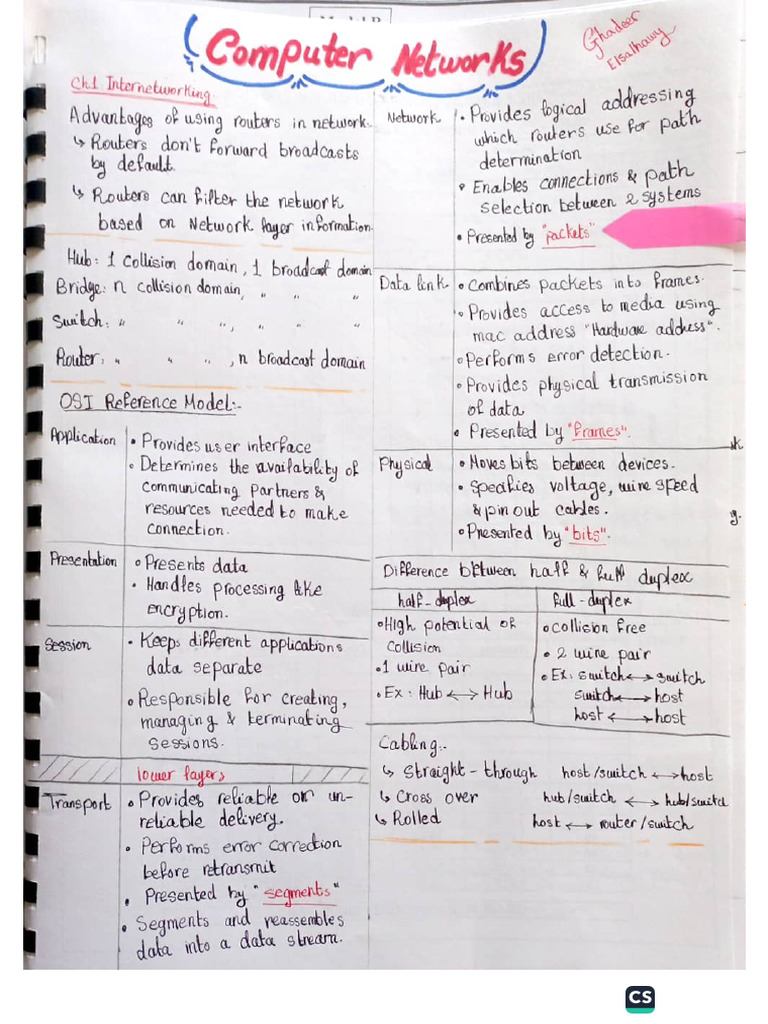 Computer Networks
Ghadeer
Elsalhawy
Ch.1 Internetworking
Advantages of using routers in network.
↳ Routers don't forward broadcasts
by default.
↳ Routers can filter the network
based on Network layer information.
Hub: 1 collision domain, 1 broadcast domain
Bridge: n collision domain, " "
Switch: " " ", " "
Router: " " ", n broadcast domain
OSI Reference Model:-
Application
• Provides user interface
• Determines the availability of
communicating partners &
resources needed to make
connection.
Presentation
• Presents data
• Handles processing like
encryption.
Session
• Keeps different applications
data separate
• Responsible for creating,
managing & terminating
sessions.
lower layers
Transport
• Provides reliable or un-
reliable delivery.
• Performs error correction
before retransmit
• Presented by "segments"
• Segments and reassembles
data into a data stream.
Network
• Provides logical addressing
which routers use for path
determination
• Enables connections & path
selection between 2 systems
• Presented by "packets"
Data link
• Combines packets into frames.
• Provides access to media using
mac address "Hardware address".
• Performs error detection.
• Provides physical transmission
of data
• Presented by "frames".
Physical
• Moves bits between devices.
• Specifies voltage, wire speed
& pin out cables.
• Presented by "bits".
Difference between half & full duplex
half-duplex
• High potential of
Collision
• 1 wire pair
• Ex: Hub ↔ Hub
full-duplex
• Collision free
• 2 wire pair
• Ex: switch ↔ switch
switch ↔ host
host ↔ host
Cabling:.
↳ Straight-through host/switch ↔ host
↳ Cross over hub/switch ↔ hub/switch
↳ Rolled host ↔ router/switch
CS